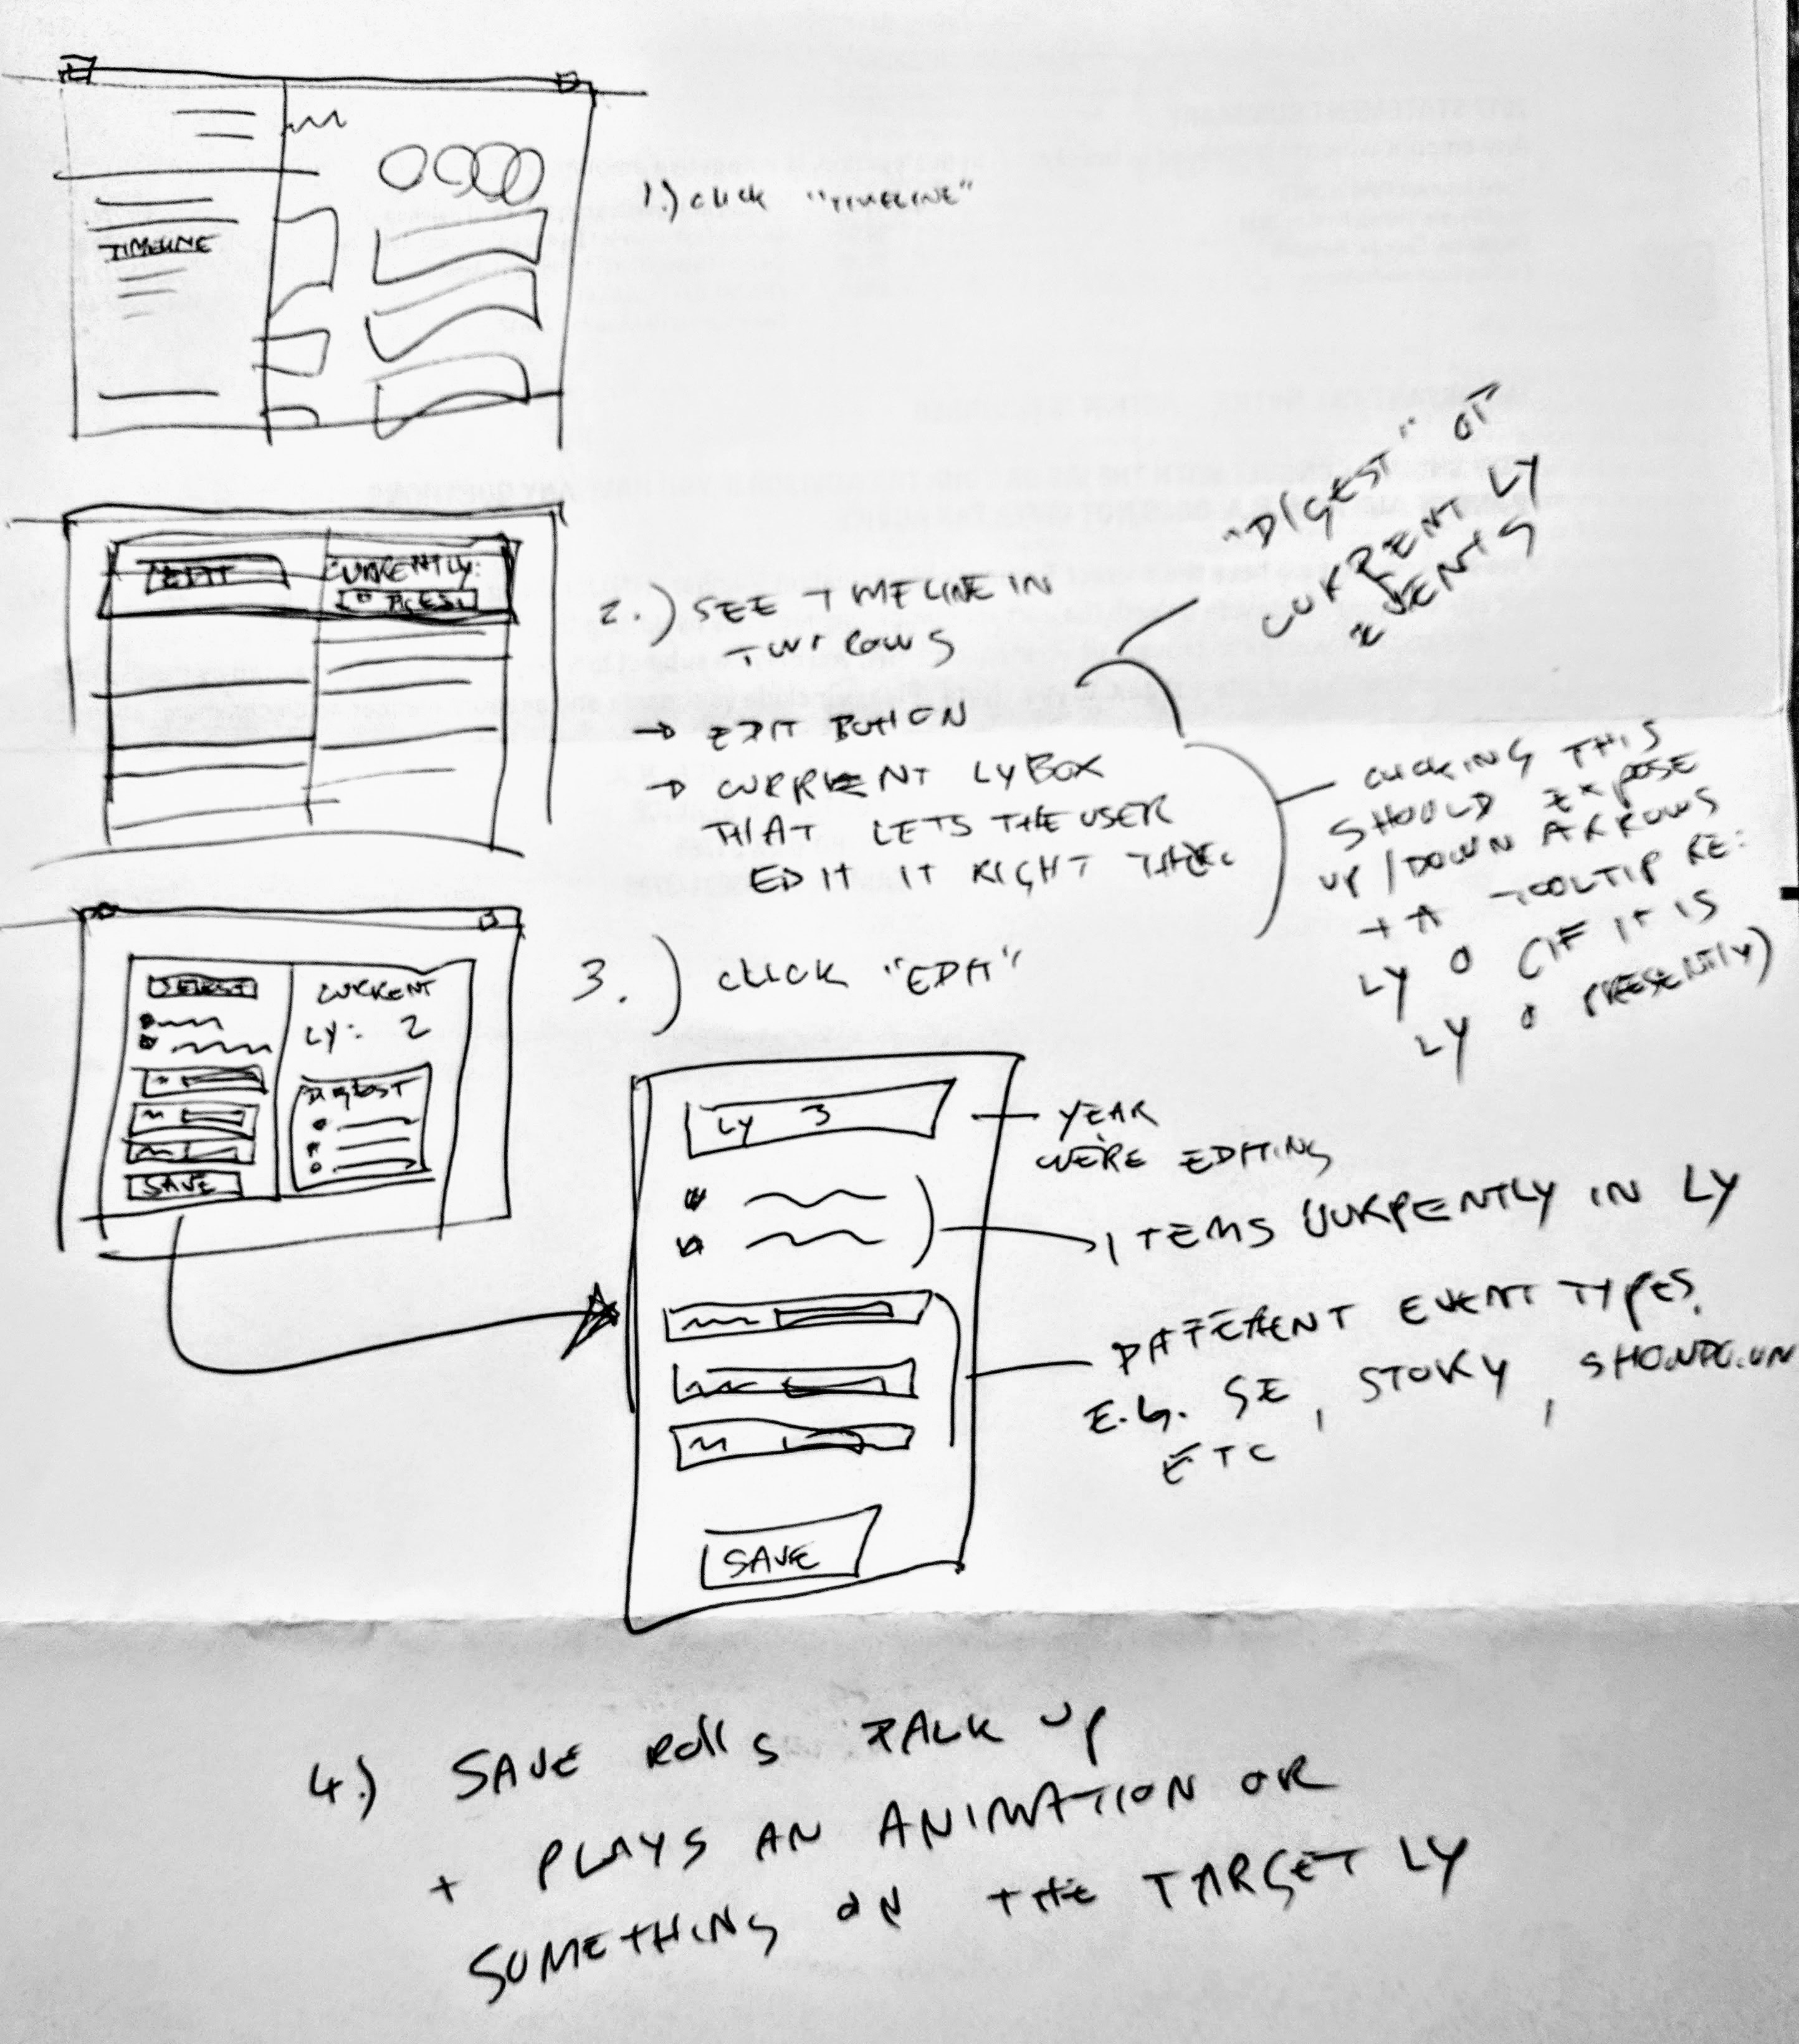 TIMELINE
1.) CLICK "TIMELINE"
EDIT
CURRENTLY:
2.) SEE TIMELINE IN
TWO ROWS
→ EDIT BUTTON
→ CURRENT LY BOX
THAT LETS THE USER
EDIT IT RIGHT THERE.
"DIGEST" OF
CURRENT LY
EVENTS
CLICKING THIS
SHOULD EXPOSE
UP/DOWN ARROWS
+ A TOOLTIP RE:
LY 0 (IF IT IS
LY 0 PRESENTLY)
SELECT
CURRENT
LY: 2
DIGEST
SAVE
3.) CLICK "EDIT"
LY 3
YEAR
WE'RE EDITING
ITEMS CURRENTLY IN LY
DIFFERENT EVENT TYPES.
E.G. SE, STORY, SHOWDOWN
ETC
SAVE
4.) SAVE ROLLS BACK UP
+ PLAYS AN ANIMATION OR
SOMETHING ON THE TARGET LY